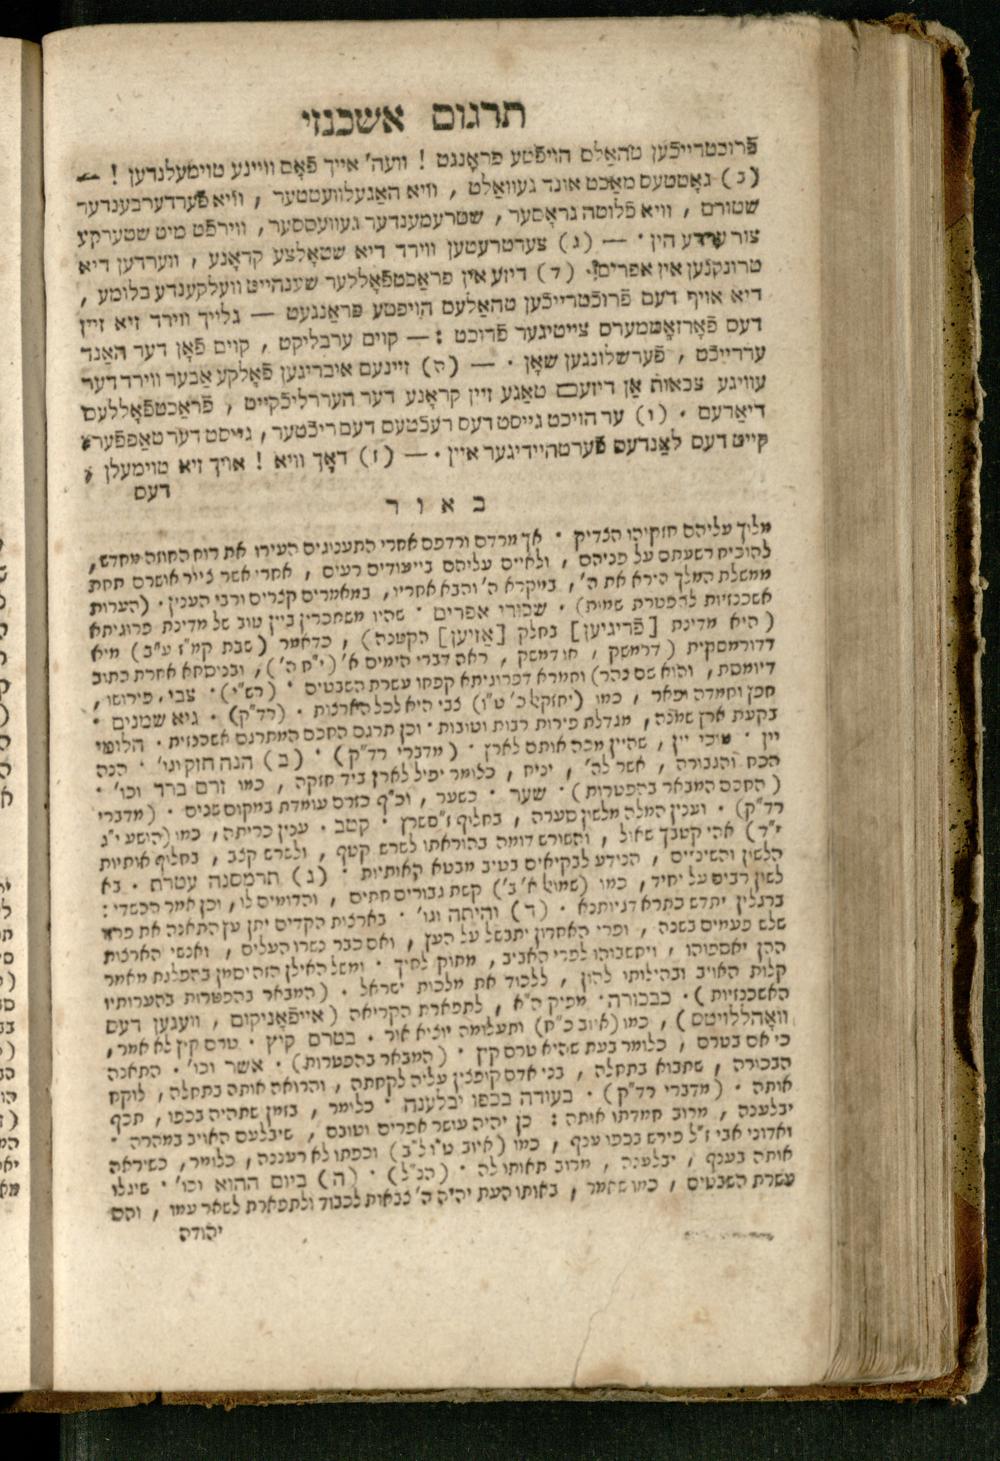 תרגום אשכנזי
פֿרוכטרייכֿען טהאַלס הויפּטע פראָנגט ! וועה' אייך פֿאָם וויינע טוימעלנדען ! —
(ב) גאָטטעס מאַכט אונד געוואַלט , וויא האַגעלוועטטער , וויא פֿערדערבענדער
שטורם , וויא פֿלוטה גראָסער , שטרעמענדער געוועססער , ווירפֿט מיט שטערקע
צור ערדע הין · — (ג) צערטרעטען ווירד דיא שטאָלצע קראָנע , ווערדען דיא
טרונקנען אין אפרים · (ד) דיזע אין פראַכטפֿאָללער שענהייט וועלקענדע בלומע ,
דיא אויף דעם פֿרוכטרייכֿען טהאַלעס הויפטע פּראַנגעט — גלייך ווירד זיא זיין
דעס פֿאָרזאָממערס צייטיגער פֿרוכט : — קוים ערבליקט , קוים פֿאָן דער האַנד
ערדייכֿט , פֿערשלונגען שאָן · — (ה) זיינעם איבריגען פֿאָלקע אַבער ווירד דער
עוויגע צבאות אַן דיזעם טאַגע זיין קראָנע דער העררליכֿקייט , פֿראַכטפֿאָללעס
דיאַדעם · (ו) ער הויכט גייסט דעס רעכֿטעס דעם ריכֿטער , גייסט דער טאַפּפֿער־
קייט דעם לאַנדעס פֿערטהיידיגער איין · — (ז) דאָך וויא ! אויך זיא טוימעלן ,
דעס
באור
מליך עליהם חזקיהו הצדיק · אך מרדם ורדפם אחרי התענוגים העירו את רוח החוזה מחדש ,
להוכיח רשעתם על פניהם , ולאיים עליהם בייעודים רעים , אחרי אשר צייר אושרם תחת
ממשלת המלך הירא את ה' , במקרא ה' והבא אחריו , במאמרים קצרים ורבי הענין · (הערות
אשכנזיות להפטרת שמות) · שכורי אפרים · שהיו משתכרין ביין טוב של מדינת פרוגיתא
(היא מדינת [פֿריגיען] בחלק [אַזיען] הקטנה) , כדאמר (שבת קמ"ז ע"ב) מיא
דדורמסקית (דרמשק , הו דמשק , ראה דברי הימים א' (י"ח ה') , ובניסחא אחרת כתוב
דיומסת , והוא שם נהר) וחמרא דפרוגיתא קפחו עשרת השבטים · (רש"י) · צבי · פירושו ,
חפץ וחמדה ופאר , כמו (יחזקל כ' ט"ו) צבי היא לכל הארצות · (רד"ק) · גיא שמנים ·
בקעת ארץ שמנה , מגדלת פירות רבות וטובות · וכן תרגם החכם המתרגם אשכנזית · הלומי
יין · מוכי יין , שהיין מכה אותם לארץ · (מדברי רד"ק) · (ב) הנה חזק וגו' · הנה
הכח והגבורה , אשר לה' , יניח , כלומר יפיל לארץ ביד חזקה , כמו זרם ברד וכו' ·
(החכם המבאר בהפטרות) · שער · כשער , וכ"ף כזרם עומדת במקום שנים · (מדברי
רד"ק) · וענין המלה מלשון סערה , בחליף ז"סשרץ · קטב · ענין כריתה , כמו (הושע י"ג
י"ד) אהי קטבך שאול , והשורש דומה בהוראתו לשרש קטף , ולשרש קצב , בחליף אותיות
הלשון והשיניים , הנידע לבקיאים בטיב מבטא האותיות · (ג) תרמסנה עטרת · בא
לשון רבים על יחיד , כמו (שמואל א' ב') קשת גבורים חתים , והדומים לו , וכן אמר הכשדי :
ברגלין יתדש כתרא דגיותנא · (ד) והיתה וגו' · בארצות הקדים יתן עץ התאנה את פריו
שלש פעמים בשנה , ופרי האחרון יתבשל על העץ , ואם כבר נשרו העלים , ואנשי הארצות
ההן יאספוהו , ויחשבוהו לפרי האביב , מתוק לחיך · ומשל האילן הזה יסמן בהפלגת מאמר
קלות האויב ובהילותו להון , ללכוד את מלכות ישראל · (המבאר בהפטרות בהערותיו
האשכנזיות) · כבכורה · מפיק ה"א , לתפארת הקריאה (אייפֿאָניקום , וועגען דעס
וואָהללויטס) , כמו (איוב כ"ח) ותעלומה יוציא אור · בטרם קיץ · טרם קיץ לא אמר ,
כי אם בטרם , כלומר בעת שהיא טרם קיץ · (המבאר בהפטרות) · אשר וכו' · התאנה
הבכורה , שתבוא בתחלה , בני אדם קופצין עליה לקחתה , והרואה אותה בתחלה , לוקח
אותה · (מדברי רד"ק) · בעודה בכפו יבלענה · כלומר , בזמן שתהיה בכפו , תכף
יבלענה , מרוב חמדתו אותה : כן יהיה עושר אפרים וטובם , שיבלעם האויב במהרה ·
ואדוני אבי ז"ל פירש בכפו ענף , כמו (איוב ט"ו ל"ב) וכפתו לא רעננה , כלומר , כשיראה
אותה בענף , יבלענה , מרוב תאותו לה · (הנ"ל) · (ה) ביום ההוא וכו' · שיגלו
עשרת השבטים , כמו שאמר , באותו העת יהיה ה' צבאות לכבוד ולתפארת לשאר עמו , והם
יהודה